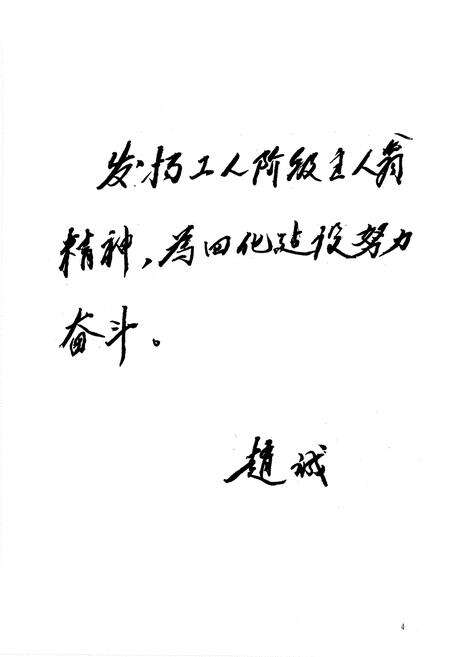 发扬工人阶级主人翁
精神，为四化建设努力
奋斗。
赵诚
4